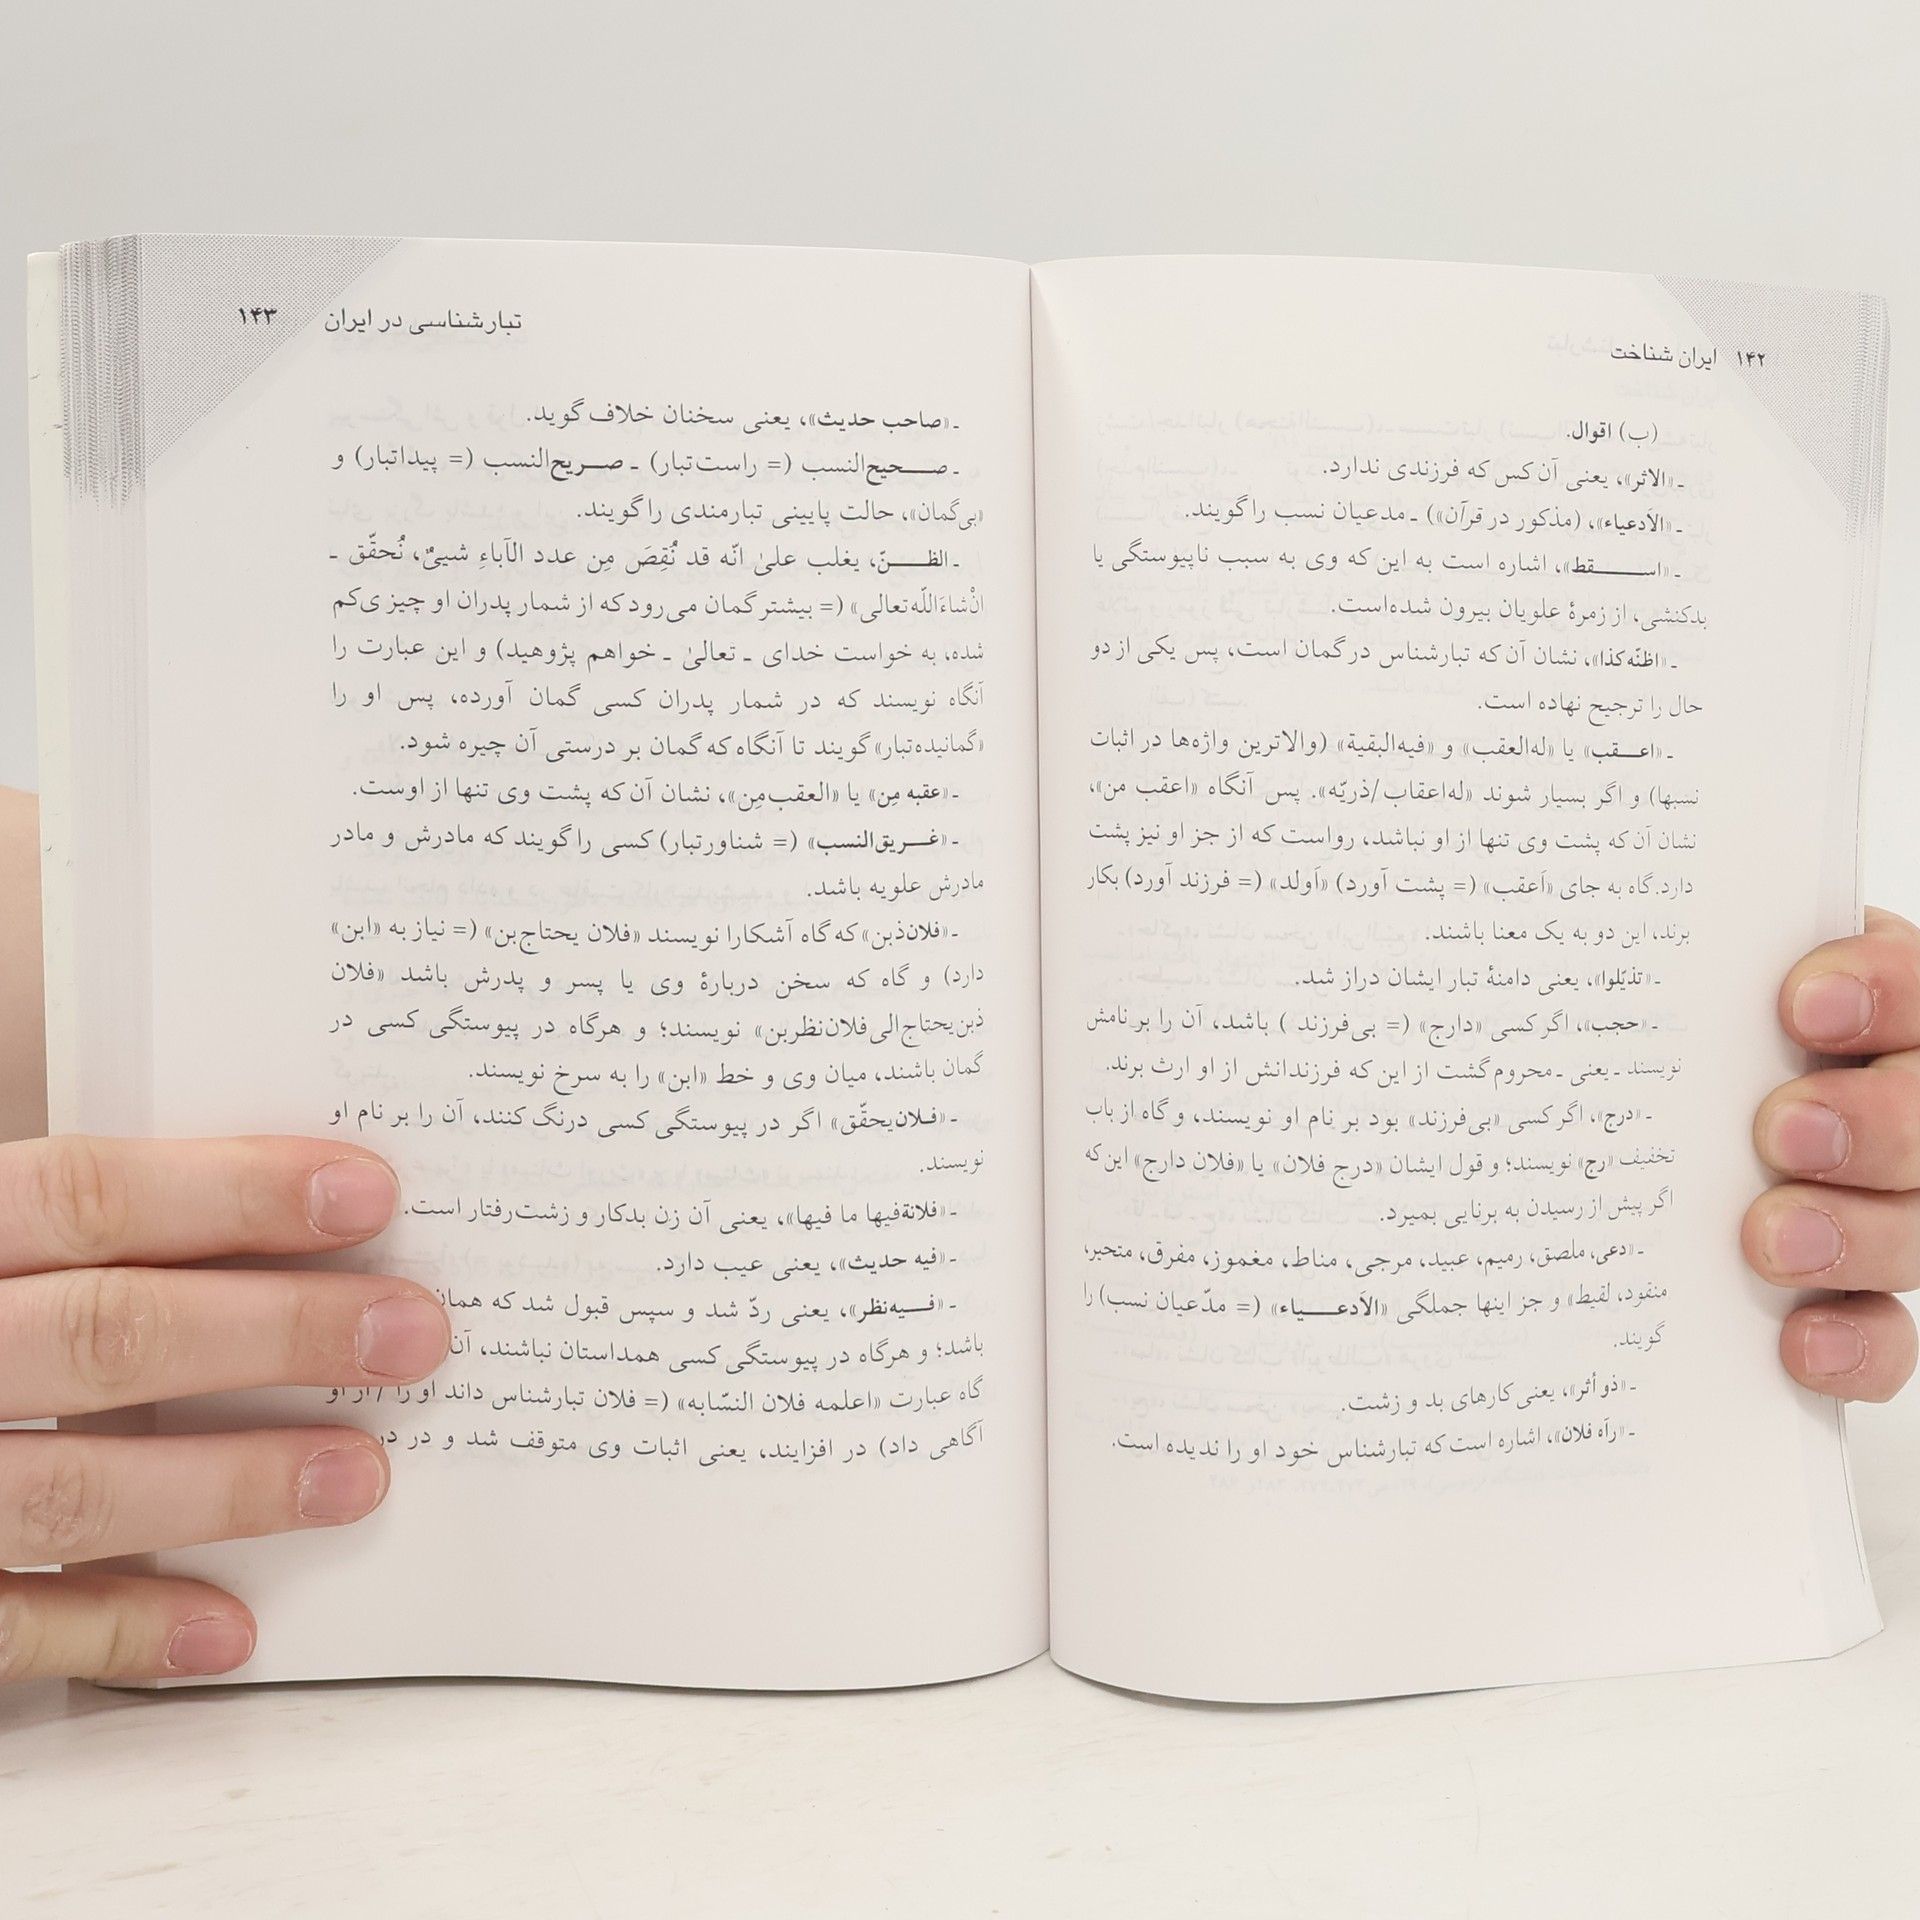 ۱۴۲ ایران شناخت
(ب) اقوال.
ـ «الاثر»، یعنی آن‌کس که فرزندی ندارد.
ـ «الاَدعیاء»، (مذکور در قرآن») ـ مدعیان نسب را گویند.
ـ «اسـقط»، اشاره است به این که وی به سبب ناپیوستگی یا
بدکنشی، از زمرهٔ علویان بیرون شده‌است.
ـ «اظنّه کذا»، نشان آن‌که تبارشناس در گمان است، پس یکی از دو
حال را ترجیح نهاده است.
ـ «اعـقب» یا «له‌العقب» و «فیه‌البقیة» (والاترین واژه‌ها در اثبات
نسبها) و اگر بسیار شوند «له‌اعقاب/ذریّه». پس آنگاه «اعقب من»،
نشان آن‌که پشت وی تنها از او نباشد، رواست که از جز او نیز پشت
دارد. گاه به جای «اَعقب» (= پشت آورد) «اَولد» (= فرزند آورد) بکار
برند، این دو به یک معنا باشند.
ـ «تذیّلوا»، یعنی دامنهٔ تبار ایشان دراز شد.
ـ «حجب»، اگر کسی «دارج» (= بی‌فرزند ) باشد، آن را بر نامش
نویسند ـ یعنی ـ محروم گشت از این که فرزندانش از او ارث برند.
ـ «درج»، اگر کسی «بی‌فرزند» بود بر نام او نویسند، و گاه از باب
تخفیف «رج» نویسند؛ و قول ایشان «درج فلان» یا «فلان دارج» این‌که
اگر پیش از رسیدن به برنایی بمیرد.
ـ «دعی، ملصق، رمیم، عبید، مرجی، مناط، مغموز، مفرق، متحیر،
منقود، لقیط» و جز اینها جملگی «الاَدعـیاء» (= مدّعیان نسب) را
گویند.
ـ «ذو أثر»، یعنی کارهای بد و زشت.
ـ «رآه فلان»، اشاره است که تبارشناس خود او را ندیده است.
تبارشناسی در ایران ۱۴۳
ـ «صاحب حدیث»، یعنی سخنان خلاف گوید.
ـ صـحیح‌النسب (= راست‌تبار) ـ صـریح‌النسب (= پیداتبار) و
«بی‌گمان»، حالت پایینی تبارمندی را گویند.
ـ الظـنّ، یغلب علیٰ انّه قد نُقِصَ مِن عدد الآباءِ شییٌ، نُحقّق ـ
انْ‌شاءَاللّه‌تعالی» (= بیشتر گمان می‌رود که از شمار پدران او چیزی‌کم
شده، به خواست خدای ـ تعالیٰ ـ خواهم پژوهید) و این عبارت را
آنگاه نویسند که در شمار پدران کسی گمان آورده، پس او را
«گمانیده‌تبار» گویند تا آنگاه که گمان بر درستی آن چیره شود.
ـ «عقبه مِن» یا «العقب‌مِن»، نشان آن‌که پشت وی تنها از اوست.
ـ «غـریق‌النسب» (= شناورتبار) کسی را گویند که مادرش و مادر
مادرش علویه باشد.
ـ «فلان‌ذبن» که گاه آشکارا نویسند «فلان یحتاج‌بن» (= نیاز به «ابن»
دارد) و گاه که سخن دربارهٔ وی یا پسر و پدرش باشد «فلان
ذبن‌یحتاج‌الی‌فلان‌نظربن» نویسند؛ و هرگاه در پیوستگی کسی در
گمان باشند، میان وی و خط «ابن» را به سرخ نویسند.
ـ «فـلان‌یحقّق» اگر در پیوستگی کسی درنگ کنند، آن را بر نام او
نویسند.
ـ «فلانة‌فیها ما فیها»، یعنی آن زن بدکار و زشت‌رفتار است.
ـ «فیه حدیث»، یعنی عیب دارد.
ـ «فـیه‌نظر»، یعنی ردّ شد و سپس قبول شد که همان
باشد؛ و هرگاه در پیوستگی کسی همداستان نباشند، آن
گاه عبارت «اعلمه فلان النسّابه» (= فلان تبارشناس داند او را / از او
آگاهی داد) در افزایند، یعنی اثبات وی متوقف شد و در